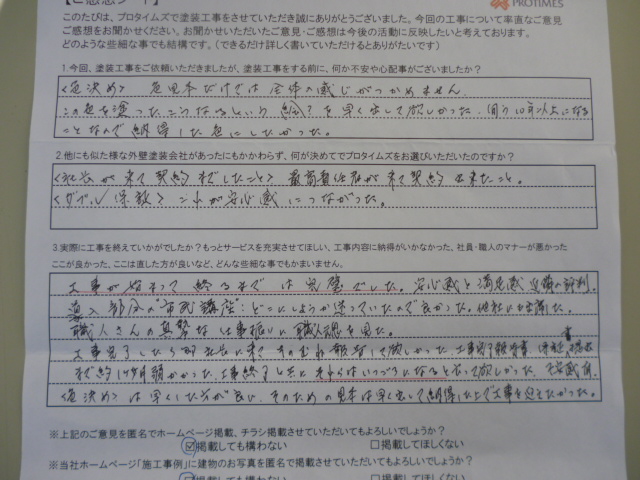 ご感想シート
PROTIMES
このたびは、プロタイムズで塗装工事をさせていただき誠にありがとうございました。今回の工事について率直なご意見
ご感想をお聞かせください。お聞かせいただいたご意見・ご感想は今後の活動に反映したいと考えております。
どのような些細な事でも結構です。（できるだけ詳しく書いていただけるとありがたいです）
1.今回、塗装工事をご依頼いただきましたが、塗装工事をする前に、何か不安や心配事がございましたか？
<色決め> 色見本だけでは全体の感じがつかめません。
この色を塗ったらこうなるという絵を早く出して欲しかった。向う10年以上になる
ことなので納得した色にしたかった。
2.他にも似た様な外壁塗装会社があったにもかかわらず、何が決めてでプロタイムズをお選びいただいたのですか？
<社長が来て契約までしたこと> 最高責任者が来て契約出来たこと。
<ダブル保数> これが安心感につながった。
3.実際に工事を終えていかがでしたか？もっとサービスを充実させてほしい、工事内容に納得がいかなかった、社員・職人のマナーが悪かった
ここが良かった、ここは直した方が良いなど、どんな些細な事でもかまいません。
工事が始まって終るまでは完璧でした。安心感と満足感
導入部分の"市民講座"：どこにしようか迷っていたので良かった。他社にも出席した。
職人さんの真摯な仕事振りに職人魂を見た。
工事完了したら即社長に来て その
まで約1ヶ月間かかった。工事終了した
<色決め>は早くした方が良い、そのための見本は早く出して納得した上で工事を迎えたかった。
※上記のご意見を匿名でホームページ掲載、チラシ掲載させていただいてもよろしいでしょうか？
☑掲載しても構わない □掲載してほしくない
※当社ホームページ「施工事例」に建物のお写真を匿名で掲載させていただいてもよろしいでしょうか？
☑掲載しても構わない □掲載してほしくない